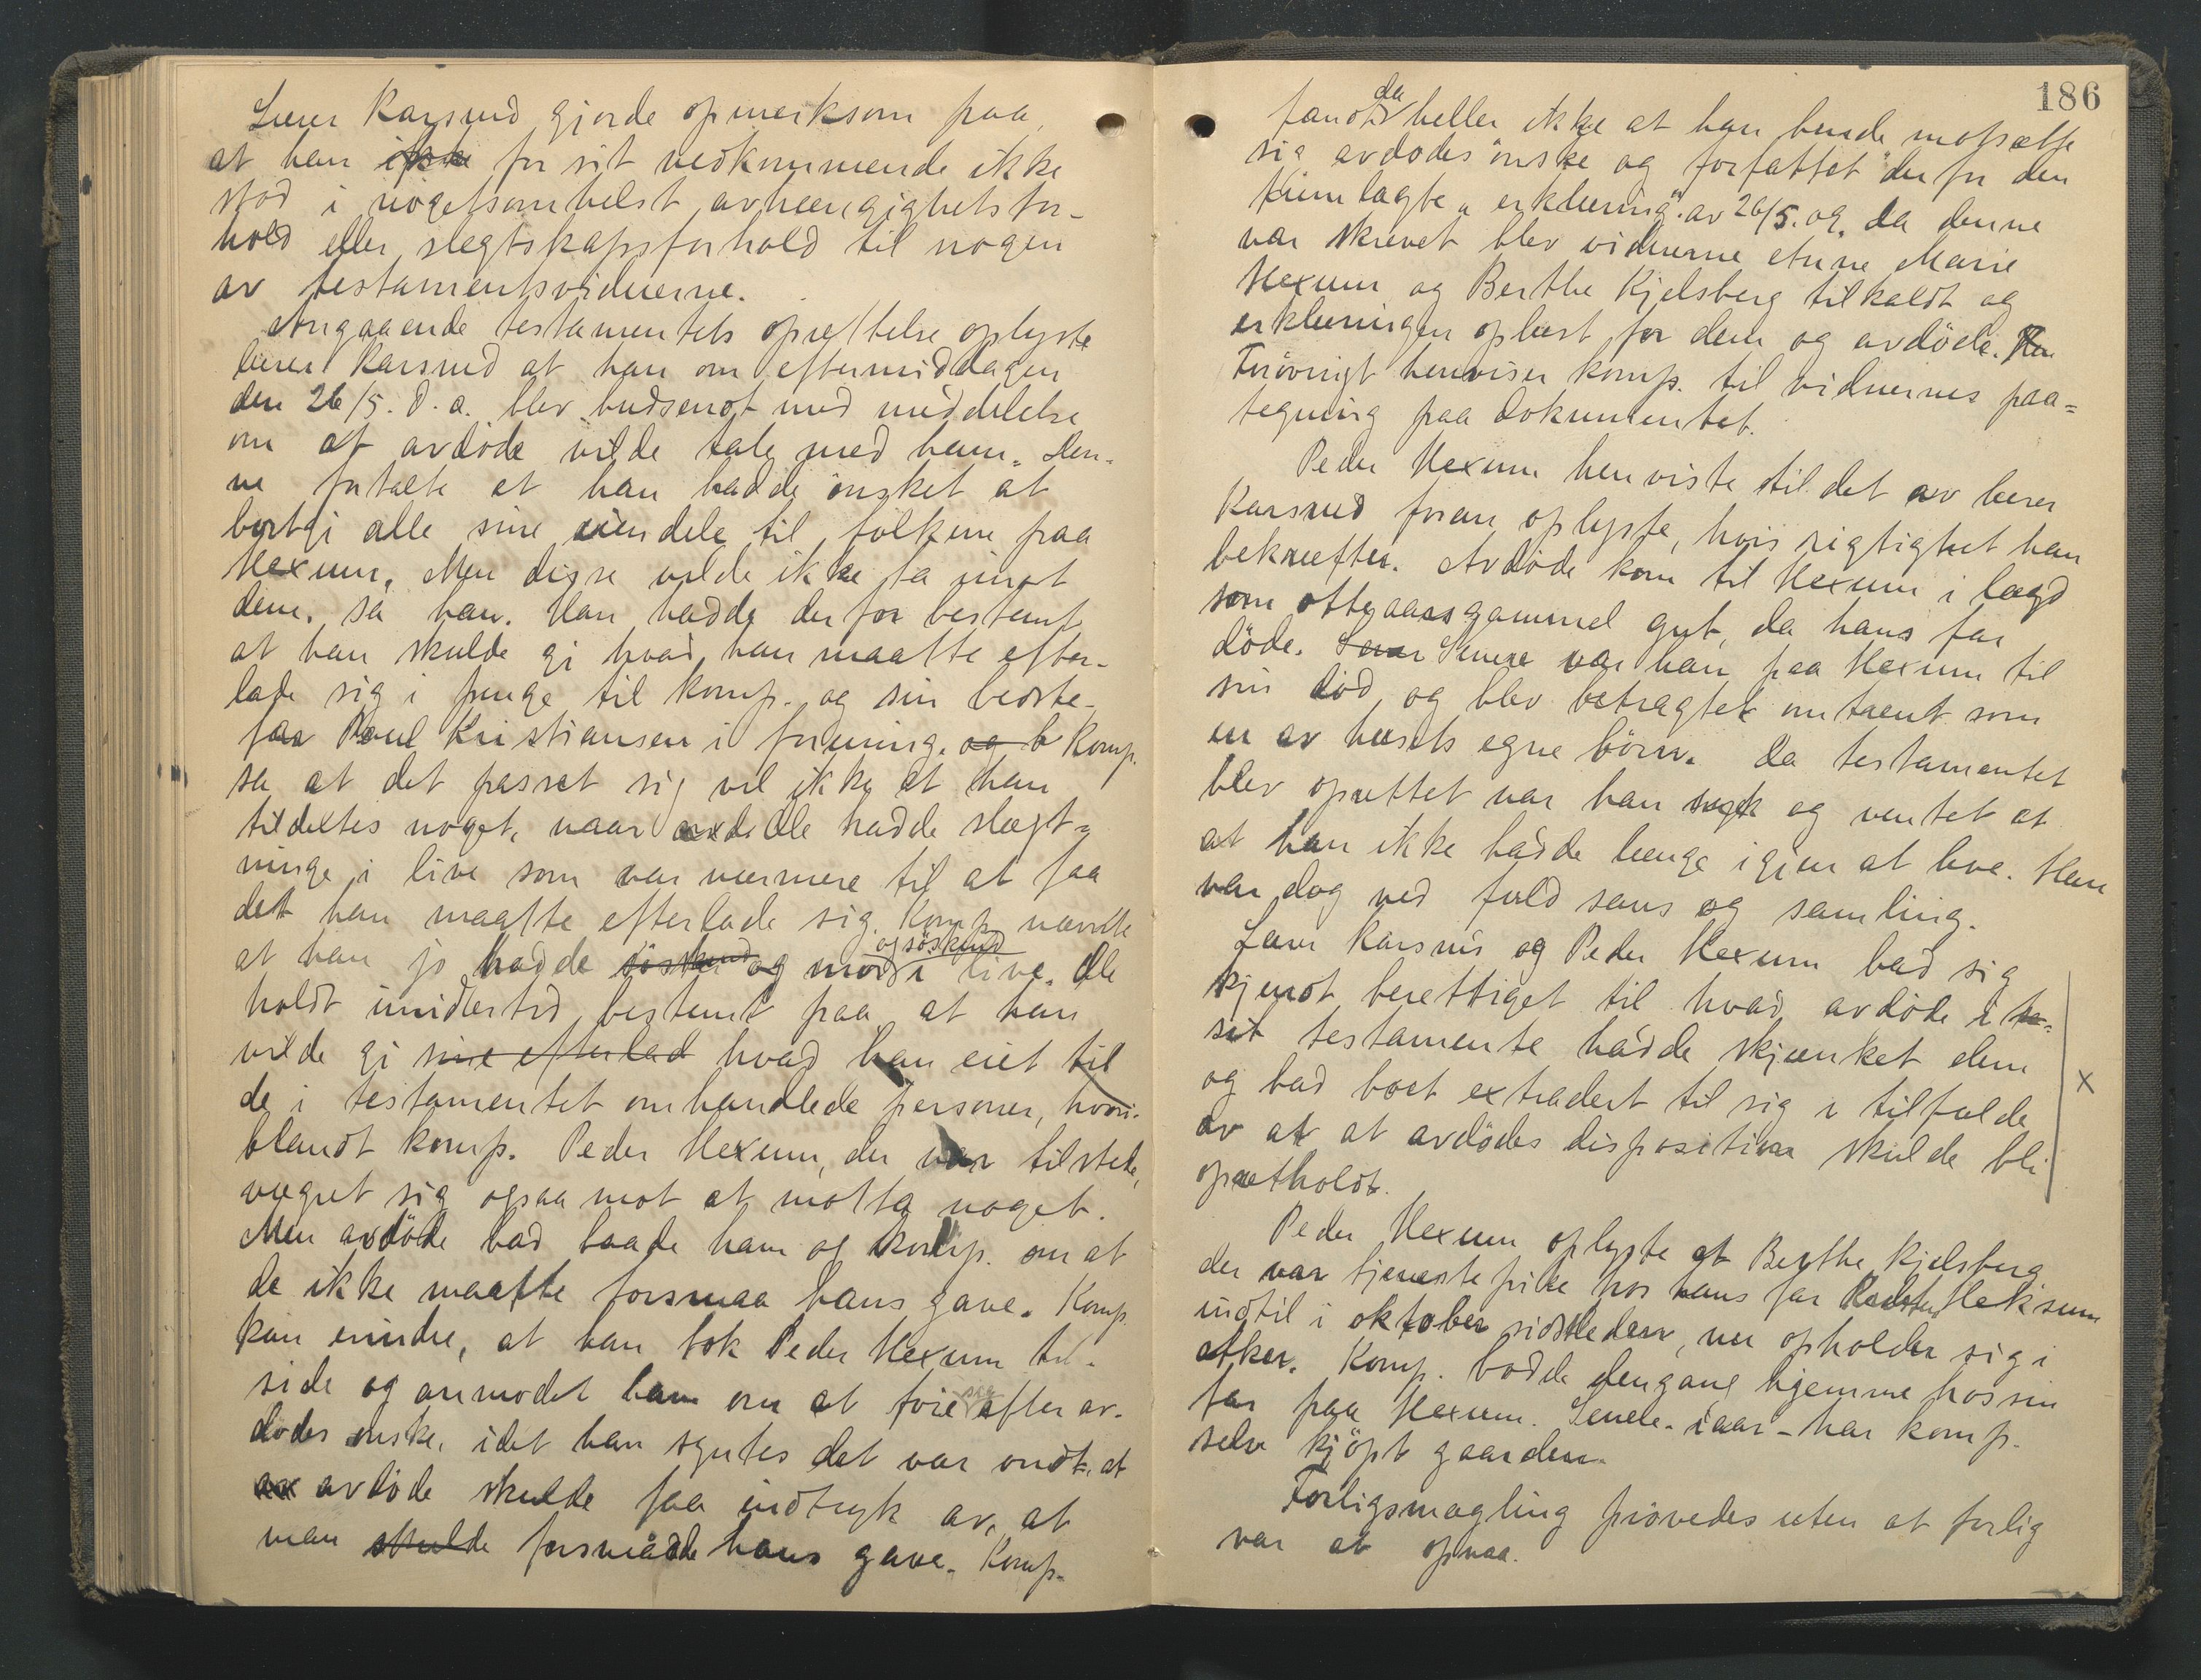 Lærer Karsrud gjorde opmerksom paa,
at han ikke for sit vedkommende ikke
stod i nogetsomhelst avhængighetsfor-
hold eller slegtskapsforhold til nogen
av testamentsvidnerne.
Angaaende testamentets oprettelse oplyste
lærer Karsrud at han om eftermiddagen
den 26/5. d.a. blev budsendt med meddelelse
om at avdöde vilde tale med ham. Den-
ne fortalte at han hadde ønsket at
bortgi alle sine eiendele til folkene paa
Hexum. Men disse vilde ikke ta imot
dem, sa han. Han hadde derfor bestemt
at han skulde gi hvad han maatte efter-
lade sig i penge til komp. og sin bedste-
far Poul Kristiansen i forening. og b Komp.
sa at det passet sig vel ikke at han
tildeltes noget, naar avdöde hadde slegt-
ninge i live som var nærmere til at faa
det han maatte efterlade sig. Komp. nævnte
at han jo hadde söskend og mor og söskend i live. Ole
holdt imidlertid bestemt paa at han
vilde gi sine efterlad hvad han eiet til
de i testamentet omhandlede personer, hvori-
blandt komp. Peder Hexum, der var tilstede,
vægret sig ogsaa mot at motta noget.
Men avdöde bad baade ham og komp. om at
de ikke maatte forsmaa hans gave. Komp.
kan erindre, at han tok Peder Hexum til-
side og anmodet ham om at föie sig efter av-
dödes ønske, idet han syntes det var ondt, at
avdöde skulde faa indtryk av, at
man skulde forsmådde hans gave. Komp.
186
fandt da heller ikke at han burde motsætte
sig avdödes ønske og forfattet derfor den
fremlagte „erklæring" av 26/5. og, da denne
var skrevet blev vidnerne Anne Marie
Hexum og Berthe Kjelsberg tilkaldt og
erklæringen oplæst for dem og avdöde.
Forövrigt henviser komp. til vidnernes paa=
tegning paa dokumentet.
Peder Hexum henviste til det av lærer
Karsrud foran oplyste, hvis rigtighet han
bekræfter. Avdöde kom til Hexum i lægd
som otteaarsgammel gut, da hans far
döde. Senere var han paa Hexum til
sin död og blev betragtet omtrent som
en av husets egne börn. Da testamentet
blev oprettet var han syk og ventet at
at han ikke hadde længe igjen at leve. Han
var dog ved fuld sans og samling.
Lærer Karsrud og Peder Hexum bad sig
kjendt berettiget til hvad avdöde i te-
sit testamente hadde skjænket dem
og bad boet extradert til sig i tilfælde
av at at avdödes disposition skulde bli
opretholdt.
x
Peder Hexum oplyste at Berthe Kjelsberg
der var tjenestepike hos hans far Heksum
indtil i oktober sidstleden, nu opholder sig i
Asker. Komp. bodde dengang hjemme hos sin
far paa Hexum. Senere - iaar - har komp.
selv kjöpt gaarden.
Forligsmægling prövedes uten at forlig
var at opnaa.